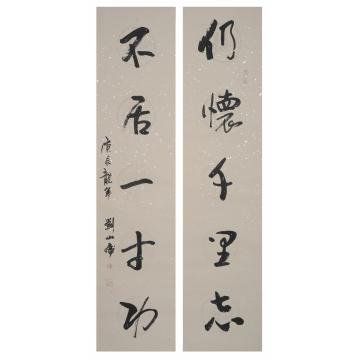 仍懷千里志
不居一寸功
庚辰龍年 劉